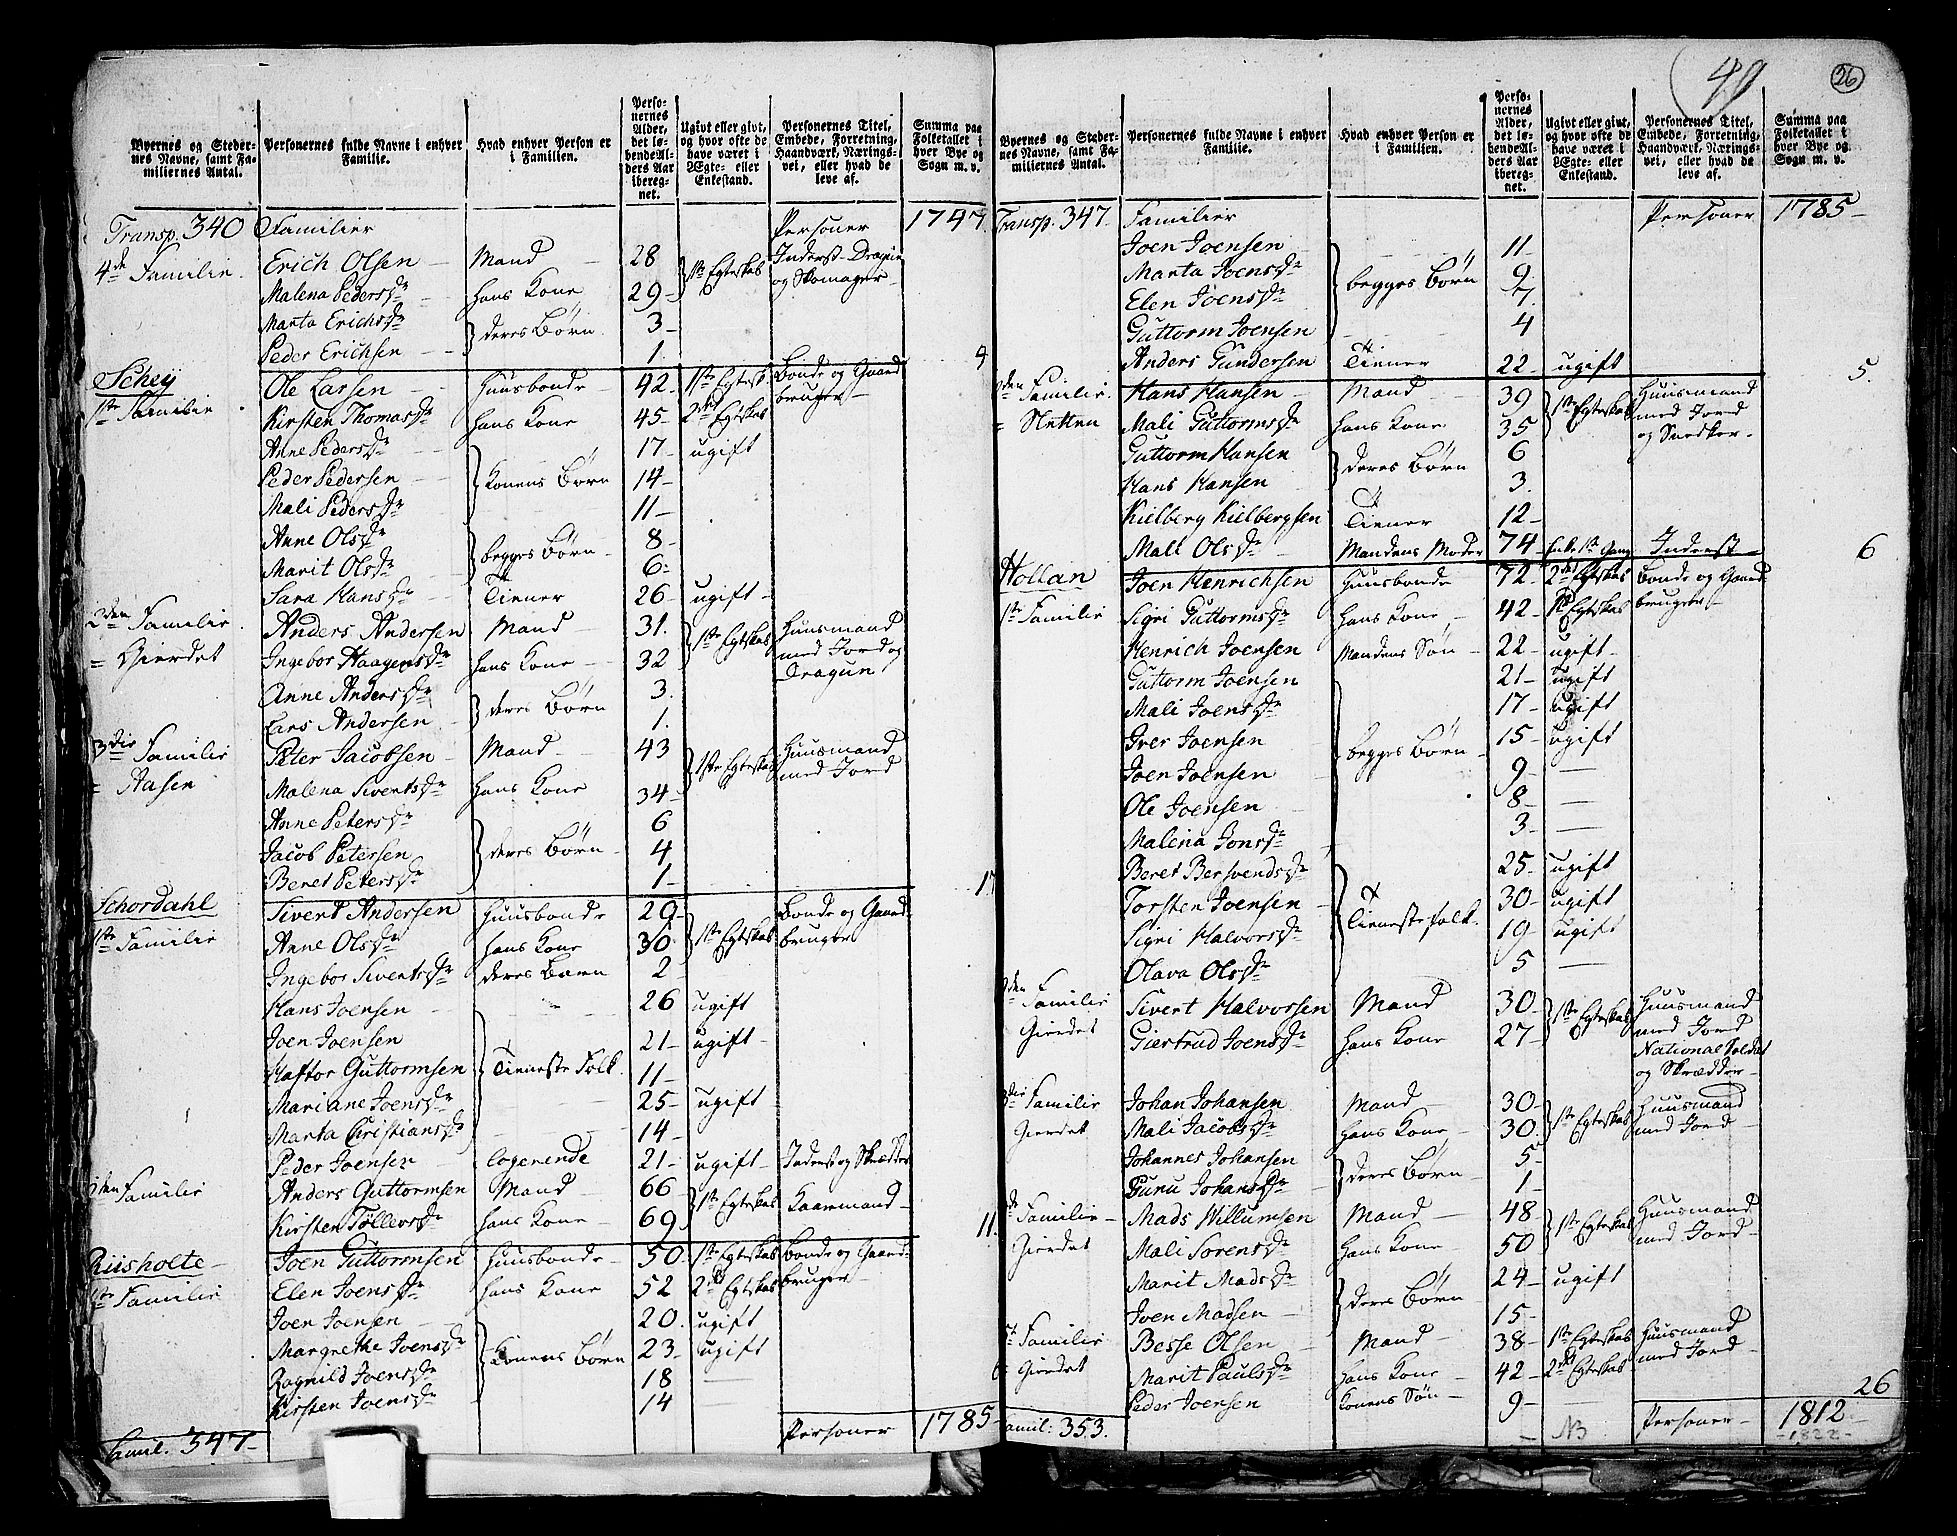 49
26
Byernes og Stedernes Navne, samt Familiernes Antal. | Personernes fulde Navne i enhver Familie. | Hvad enhver Person er i Familien. | Personernes Alder, det løbende Alders Aar iberegnet. | Ugivt eller givt, og hvor ofte de have været i Ægte- eller Enkestand. | Personernes Titel, Embede, Forretning, Haandværk, Næringsvei, eller hvad de leve af. | Summa paa Folketallet i hver Bye og Sogn m. v.
Transp. 340 Familier Personer 1747
4de Familie. Erich Olsen Mand 28 1ste Egteskab Inderst Dragun
Malena Pedersdr hans Kone 29 og Skomager
Marta Erichsdr deres Børn 3
Peder Erichsen 1 4
Schey Ole Larsen Huusbonde 42 1ste Egtesk. Bonde og Gaard
1ste Familie Kirsten Thomasdr hans Kone 45 2det Egteskab bruger
Anne Pedersdr 17 ugift
Peder Pedersen Konens Børn 14
Mali Pedersdr 11
Anne Olsdr 8
Marit Olsdr begges Børn 6
Sara Hansdr Tiener 26 ugift
2den Familie Anders Andersen Mand 31 1ste Egteskab Huusmand
Gierdet Ingebor Haagensdr hans Kone 32 med Jord og
Anne Andersdr deres Børn 3 Dragun
Lars Andersen 1
3die Familie Peter Jacobsen Mand 43 1ste Egteskab Huusmand
Aasen Malena Sivertsdr hans Kone 34 med Jord
Anne Petersdr 6
Jacob Petersen deres Børn 4
Beret Petersdr 1 17
Schordahl Sivert Andersen Huusbonde 29 Bonde og Gaard
1ste Familie Anne Olsdr hans Kone 30 1ste Egteskab bruger
Ingebor Sivertsdr deres Barn 2
Hans Joensen 26 ugift
Joen Joensen 21 ugift
Haftor Guttormsen Tieneste Folk 11
Mariane Joensdr 25 ugift
Marta Christiansdr 14
Peder Joensen Logerende 21 ugift Inderst og Skrædder
2den Familie Anders Guttormsen Mand 66 1ste Egteskab Kaarmand
Kirsten Tøllersdr hans Kone 69 11
Riisholte Joen Guttormsen Huusbonde 50 1ste Egteskab Bonde og Gaard
1ste Familie Elen Joensdr hans Kone 52 2det Egteskab bruger
Joen Joensen 20 ugift
Margrethe Joensdr Konens Børn 23 ugift
Ragnild Joensdr 18
Kirsten Joensdr 14
Famil. 347 Personer 1785
Byernes og Stedernes Navne, samt Familiernes Antal. | Personernes fulde Navne i enhver Familie. | Hvad enhver Person er i Familien. | Personernes Alder, det løbende Alders Aar iberegnet. | Ugivt eller givt, og hvor ofte de have været i Ægte- eller Enkestand. | Personernes Titel, Embede, Forretning, Haandværk, Næringsvei, eller hvad de leve af. | Summa paa Folketallet i hver Bye og Sogn m. v.
Transp. 347 Familier Personer 1785
Joen Joensen 11
Marta Joensdr begges Børn 9
Elen Joensdr 7
Guttorm Joensen 4
Anders Gundersen Tiener 22 ugift 5
2den Familie Hans Hansen Mand 39 1ste Egteskab Huusmand
Sletten Mali Guttormsdr hans Kone 35 med Jord
Guttorm Hansen deres Børn 6 og Snedker
Hans Hansen 3
Kielberg Kielbergsen Tiener 12
Mali Olsdr Mandens Moder 74 Enke 1ste Gang Inderst 6
Hollan Joen Henrichsen Huusbonde 72 2det Egteskab Bonde og Gaard
1ste Familie Sigri Guttormsdr hans Kone 42 1ste Egteskab bruger
Henrich Joensen Mandens Søn 22 ugift
Guttorm Joensen 21 ugift
Mali Joensdr 17 ugift
Iver Joensen begges Børn 15 ugift
Joen Joensen 9
Ole Joensen 8
Malena Jonsdr 3
Beret Bersvendsdr 25 ugift
Torsten Joensen Tienestefolk 30 ugift
Sigri Halvorsdr 19 ugift
Olava Olsdr 5
2den Familie Sivert Halvorsen Mand 30 1ste Egteskab Huusmand
Gierdet Giertrud Joensdr hans Kone 27 med Jord
National Soldat
og Skrædder
3die Familie Johan Johansen Mand 30 1ste Egteskab Huusmand
Gierdet Mali Jacobsdr hans Kone 30 med Jord
Johannes Johansen deres Børn 5
Guru Johansdr 1
de Familie Mads Willumsen Mand 48 1ste Egteskab Huusmand
Gierdet Mali Sørensdr hans Kone 50 med Jord
Marit Madsdr deres Børn 24 ugift
Joen Madsen 15
Familie Besse Olsen Mand 38 1ste Egteskab Huusmand
Gierdet Marit Paulsdr hans Kone 42 2det Egteskab med Jord
Peder Joensen Konens Søn 9 26
Famil. 353. NB Personer 1812
1822